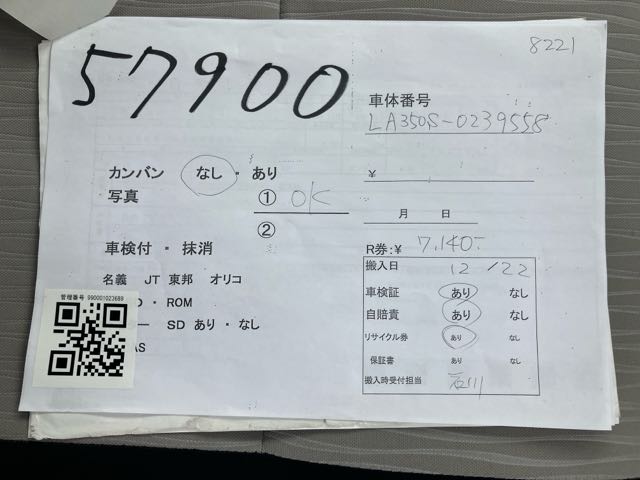 8221
57900
車体番号
LA350S-0239558
カンバン なし ・ あり
写真 ① OK
¥
②
月 日
車検付 ・ 抹消
R券:¥ 7,140-
名義 JT 東邦 オリコ
・ ROM
ー SD あり ・ なし
AS
管理番号 990001023689
搬入日 12/22
車検証 あり なし
自賠責 あり なし
リサイクル券 あり なし
保証書 あり なし
搬入時受付担当 石川